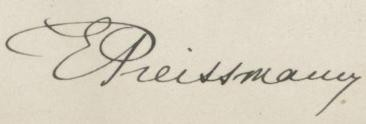 E Preissmann